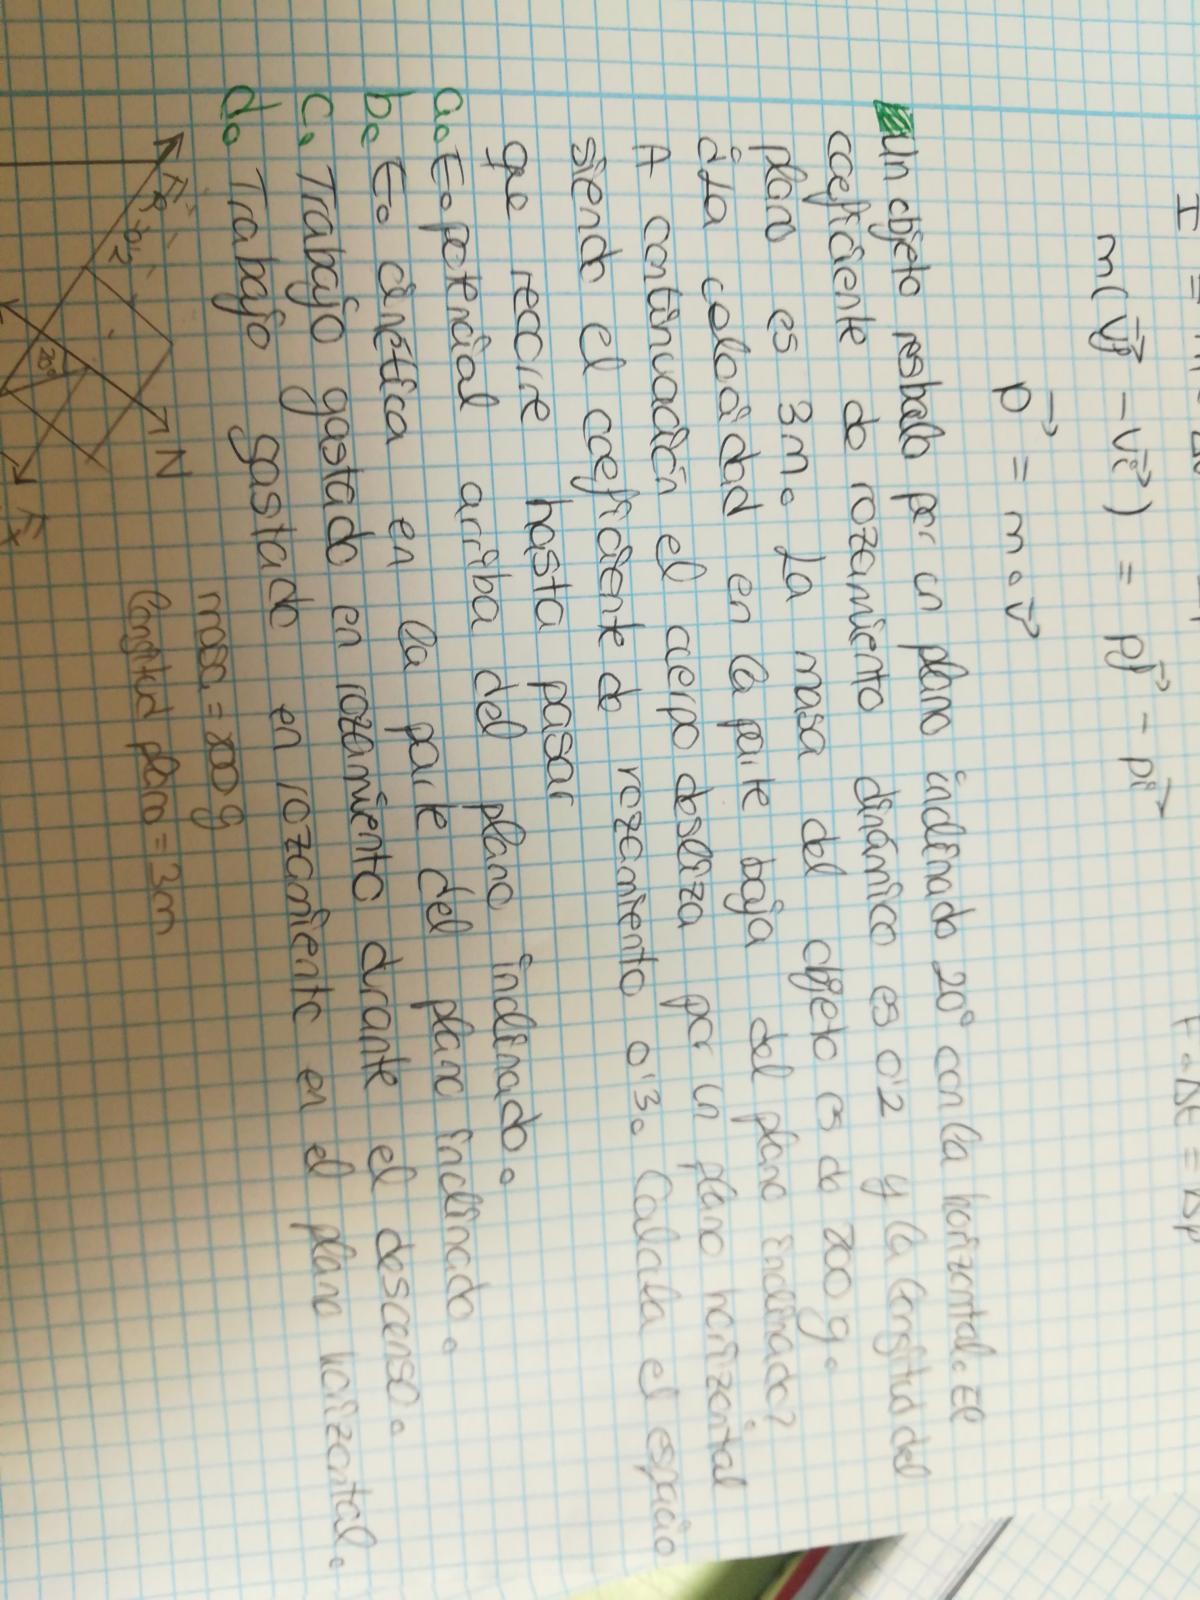 m(vf - vi) = pf - pi
p = m · v
Un objeto resbala por un plano inclinado 20° con la horizontal. El
coeficiente de rozamiento dinámico es 0'2 y la longitud del
plano es 3m. La masa del objeto es de 200 g.
¿La velocidad en la parte baja del plano inclinado?
A continuación el cuerpo desliza por un plano horizontal
siendo el coeficiente de rozamiento 0'3. Calcula el espacio
que recorre hasta pasar
a. E. potencial arriba del plano inclinado.
b. E. cinética en la parte del plano inclinado.
c. Trabajo gastado en rozamiento durante el descenso.
d. Trabajo gastado en rozamiento en el plano horizontal.
masa = 200 g
longitud plano = 3m
N
20°